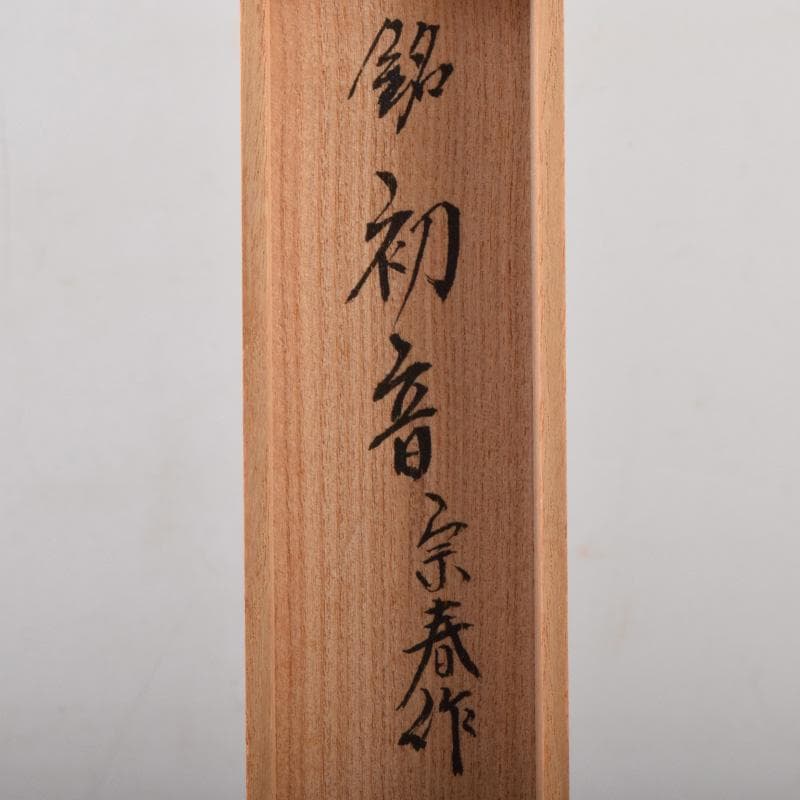 銘 初音
宗春作